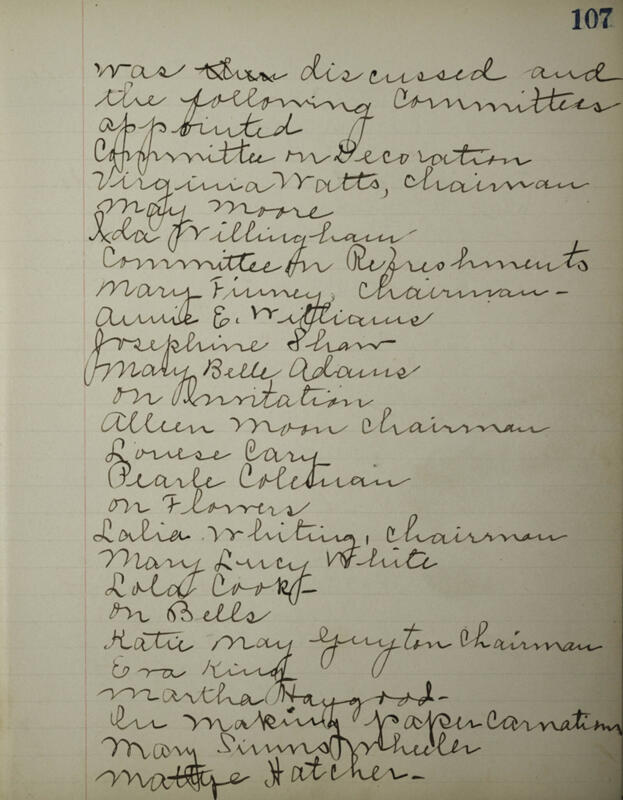 107
was then discussed and
the following Committees
appointed
Committee on Decoration
Virginia Watts, chairman
May Moore
Ida Willingham
Committee on Refreshments
Mary Finney, Chairman-
Annie E. Williams
Josephine Shaw
Mary Belle Adams
on Invitation
Alleen Moon chairman
Louese Cary
Pearle Coleman
on Flowers
Lalia Whiting, chairman
Mary Lucy White
Lola Cook-
on Bells
Katie May Guyton Chairman
Eva King
Martha Haygood-
On making paper carnations
Mary Simms Wheeler
Mattye Hatcher-